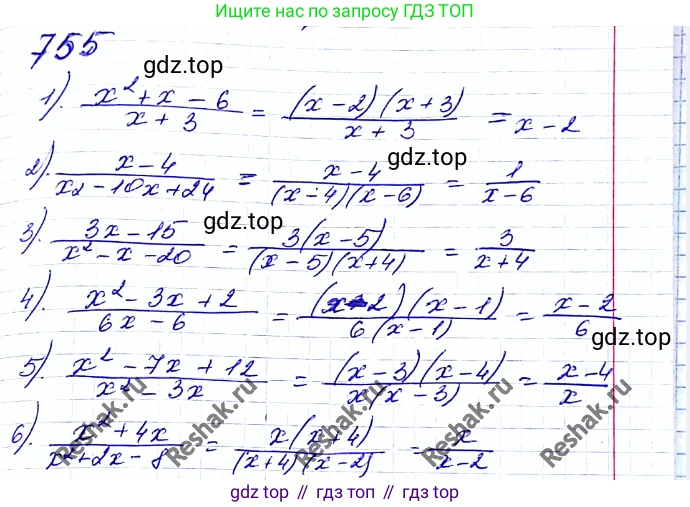 Ищите нас по запросу ГДЗ ТОП
755
gdz.top
1). (x² + x - 6)/(x + 3) = ((x - 2)(x + 3))/(x + 3) = x - 2
gdz.top
2). (x - 4)/(x2 - 10x + 24) = (x - 4)/((x - 4)(x - 6)) = 1/(x - 6)
gdz.top
3). (3x - 15)/(x² - x - 20) = (3(x - 5))/((x - 5)(x + 4)) = 3/(x + 4)
4). (x² - 3x + 2)/(6x - 6) = ((x - 2)(x - 1))/(6(x - 1)) = (x - 2)/6
gdz.top
5). (x² - 7x + 12)/(x² - 3x) = ((x - 3)(x - 4))/(x(x - 3)) = (x - 4)/x
Reshak.ru Reshak.ru Reshak.ru Reshak.ru
6). (x² + 4x)/(x² + 2x - 8) = (x(x + 4))/((x + 4)(x - 2)) = x/(x - 2)
Reshak.ru Reshak.ru Reshak.ru Reshak.ru
gdz.top // гдз топ // гдз.топ